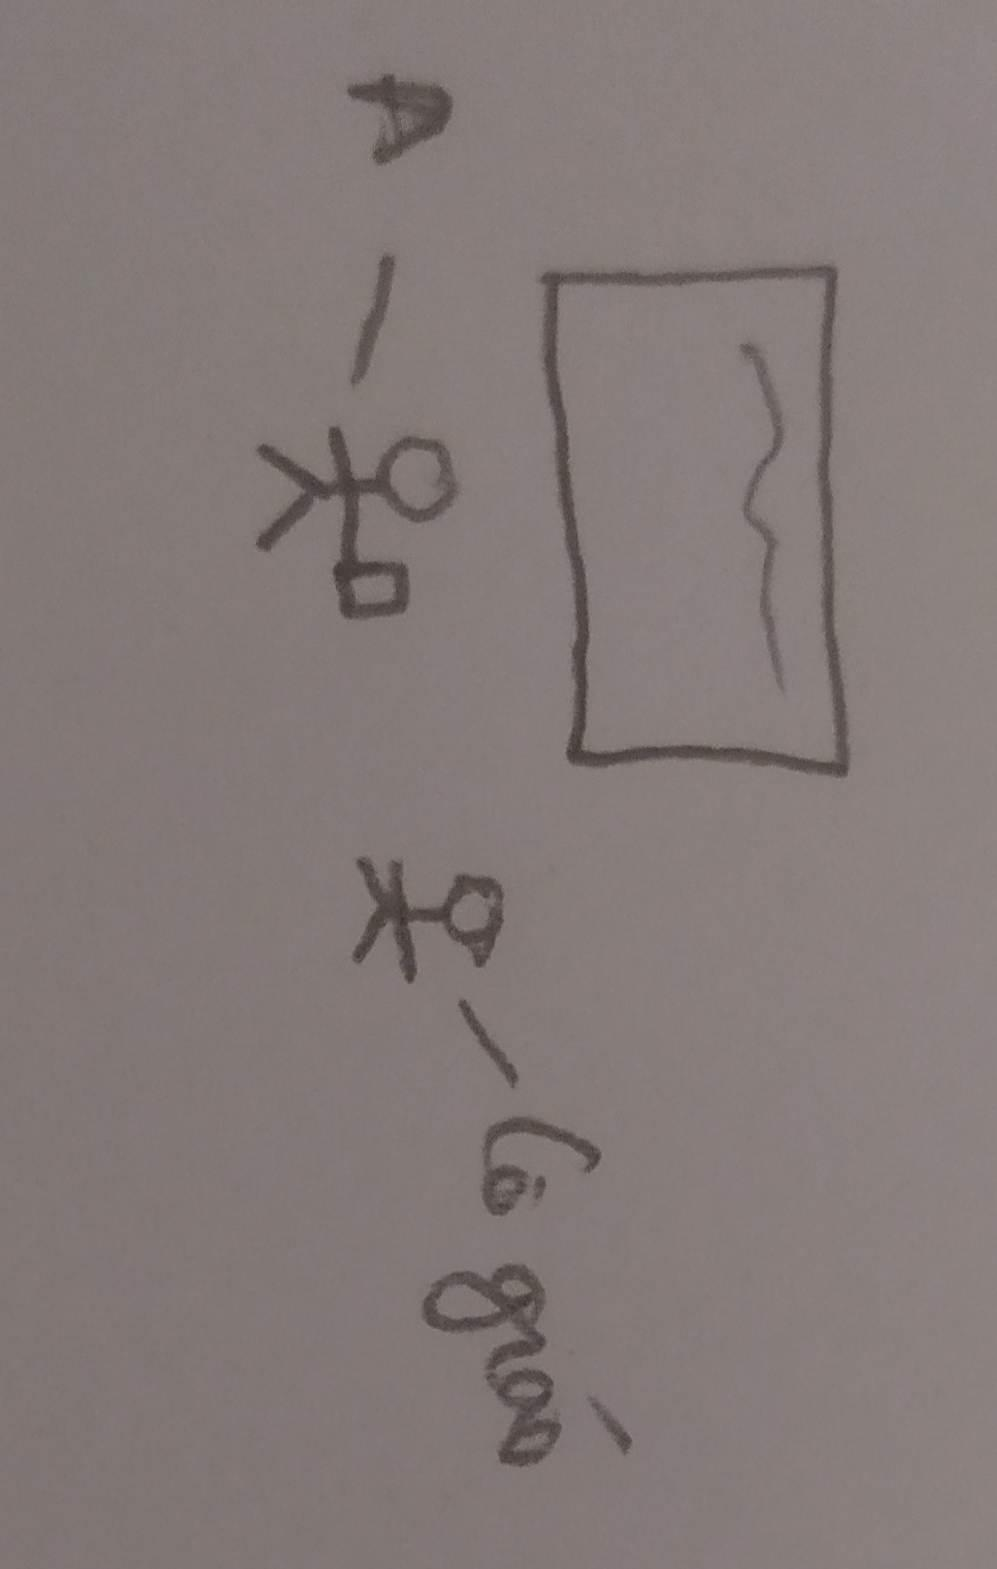 A
Cô giáo